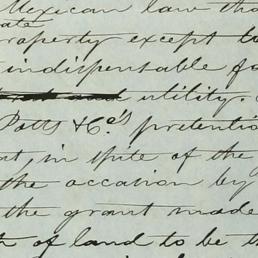 Mexican law tha
ate
roperty except t
indispensable fo
utility.
Potts & Co's pretentio
t, in spite of the
the occasion by
the grant made
of land to be th